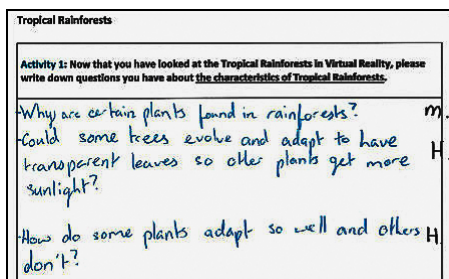 Tropical Rainforests
Activity 1: Now that you have looked at the Tropical Rainforests in Virtual Reality, please
write down questions you have about the characteristics of Tropical Rainforests.
-Why are certain plants found in rainforests? m.
-Could some trees evolve and adapt to have
transparent leaves so other plants get more H.
sunlight?
-How do some plants adapt so well and others H
don't?